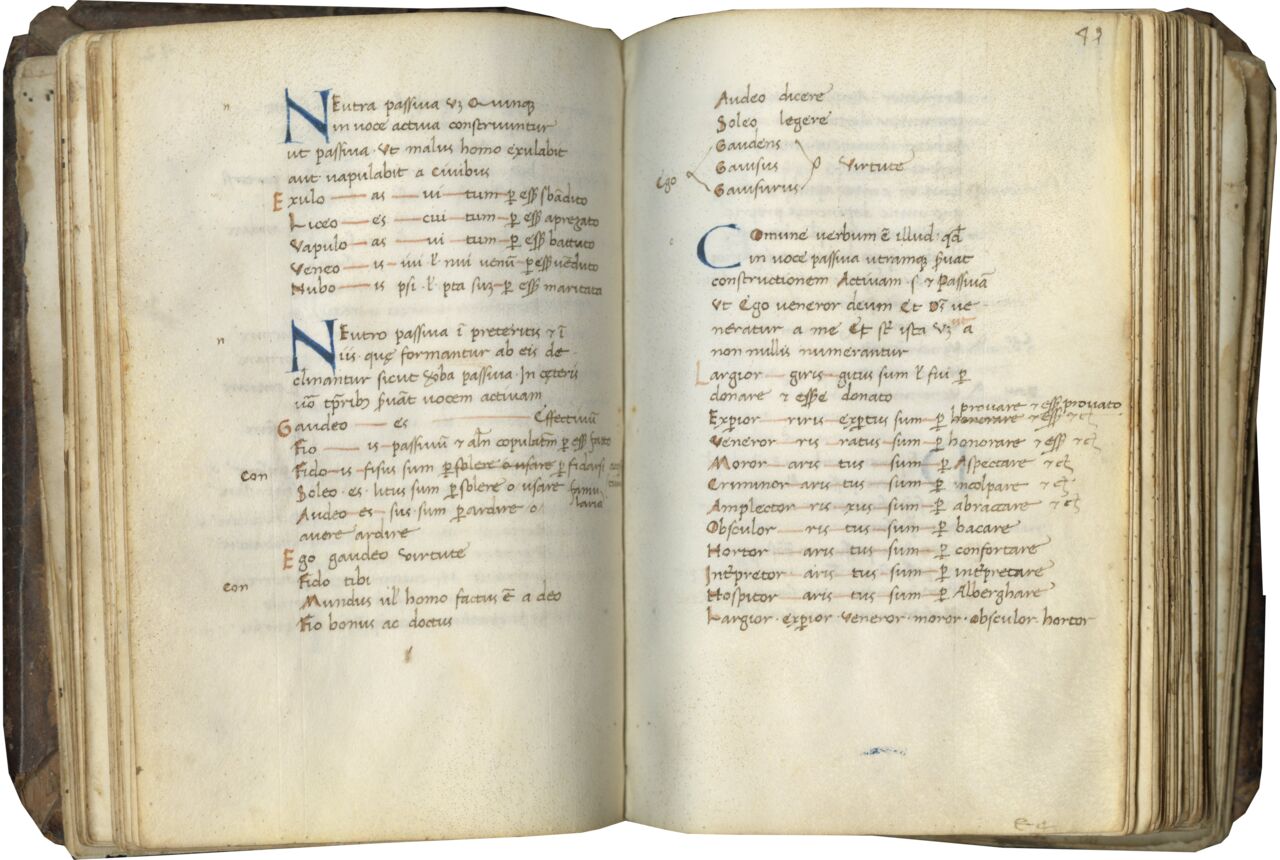 NEutra passiva vȝ Quinqȝ
in voce activa construuntur
ut passiva · Ut malus homo exulabit
aut vapulabit a civibus
Exulo — as — vi — tum — ꝑ essȝ sbādito
Liceo — es — cui — tum — ꝑ essȝ aprezato
Vapulo — as — vi — tum — ꝑ essȝ battuto
Veneo — is — iui l' nui venū — ꝑ essȝ vēduto
Nubo — is psi · l' pta suȝ — ꝑ essȝ maritata
NEutro passiva ī preteritis ⁊ ī
iis · quę formantur ab eis de
clinantur sicut ỽba passiva · In cęteris
uō tꝑribȝ ẜuāt vocem activam
Gaudeo — es — Effectivū
Fio — is passivū ⁊ aln̄ copulatiū ꝑ essȝ facto
con Fido is fisus sum ꝑ solere o usare ꝑ fidarsi
Soleo · es · litus sum ꝑ solere o usare
Audeo es · sus · sum ꝑ ardire o
avere ardire
Ego gaudeo virtute
Fido tibi
con Mundus ul' homo factus ē a deo
Fio bonus ac doctus
49
Audeo dicere
Soleo legere
Gaudens
Ego Gavisus virtute
Gavisurus
c COmune verbum ē illud · qd̄
in voce passiva utramqȝ ẜuat
constructionem Activam · s · ⁊ Passivā
Ut Ego veneror deum Et D̄s ve
neratur a me Et st̄ ista vȝ ut a
non nullis numerantur
Largior — giris — gitus sum l' fui ꝑ
donare ⁊ essȝe donato
provare ⁊ essȝ provato
Exꝑior — riris exꝑtus sum ꝑ honorare ⁊ essȝ ⁊c̄
Veneror — ris — ratus — sum — ꝑ honorare ⁊ essȝ ⁊c̄
Moror — aris — tus — sum — ꝑ Aspectare ⁊c̄
Criminor aris tus — sum — ꝑ incolpare ⁊ c̄
Amplector ris xus — sum — ꝑ abraccare ⁊ c̄
Obsculor — ris tus — sum — ꝑ bacare
Hortor — aris tus — sum — ꝑ confortare
Int̄pretor — aris — tus — sum — ꝑ int̄pretare
Hospitor — aris — tus — sum — ꝑ Alberghare
Largior · exꝑior · veneror · moror · obsculor · hortor